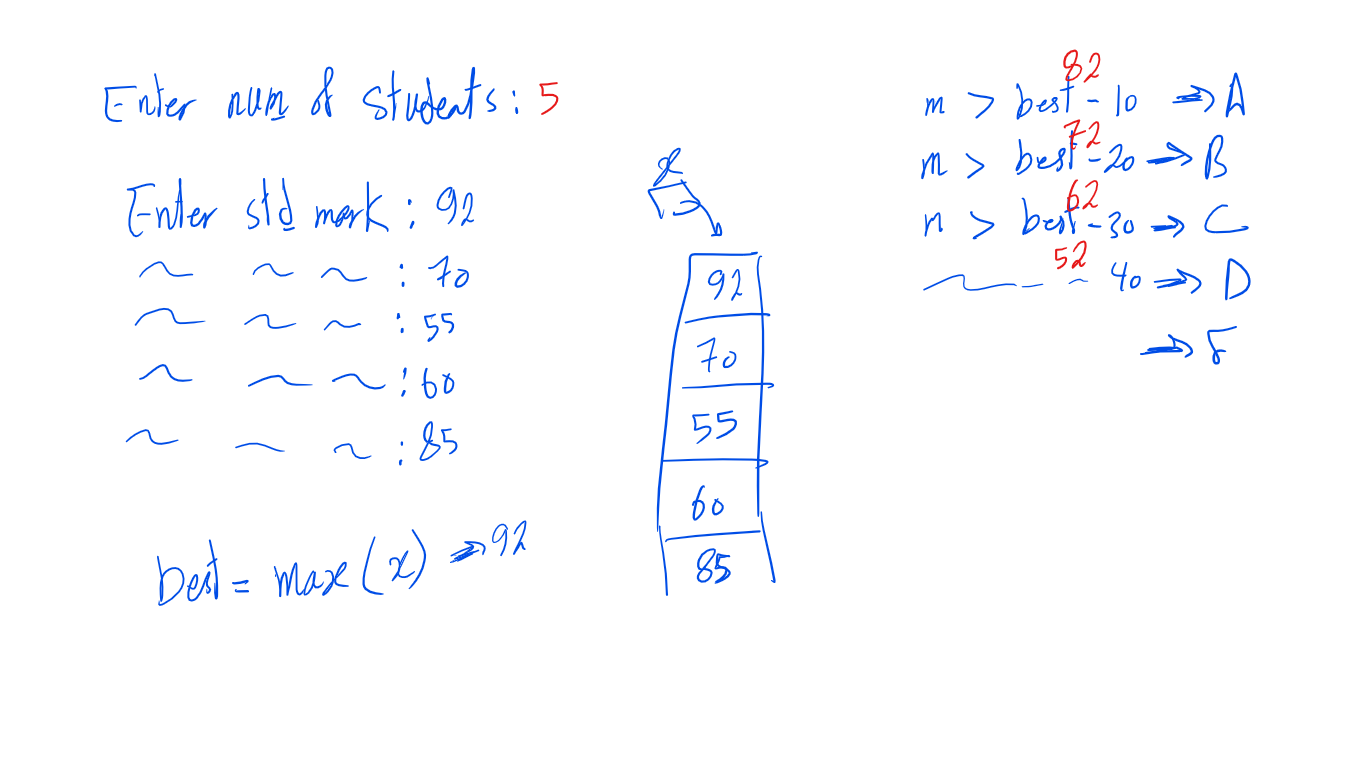 Enter num of students: 5
Enter std mark: 92
: 70
: 55
: 60
: 85
best = max(x) → 92
x
92
70
55
60
85
82
m > best - 10 → A
72
m > best - 20 → B
62
m > best - 30 → C
52
40 → D
→ F